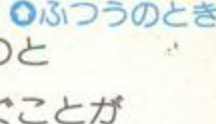 ●ふつうのとき
つと
ぐことが